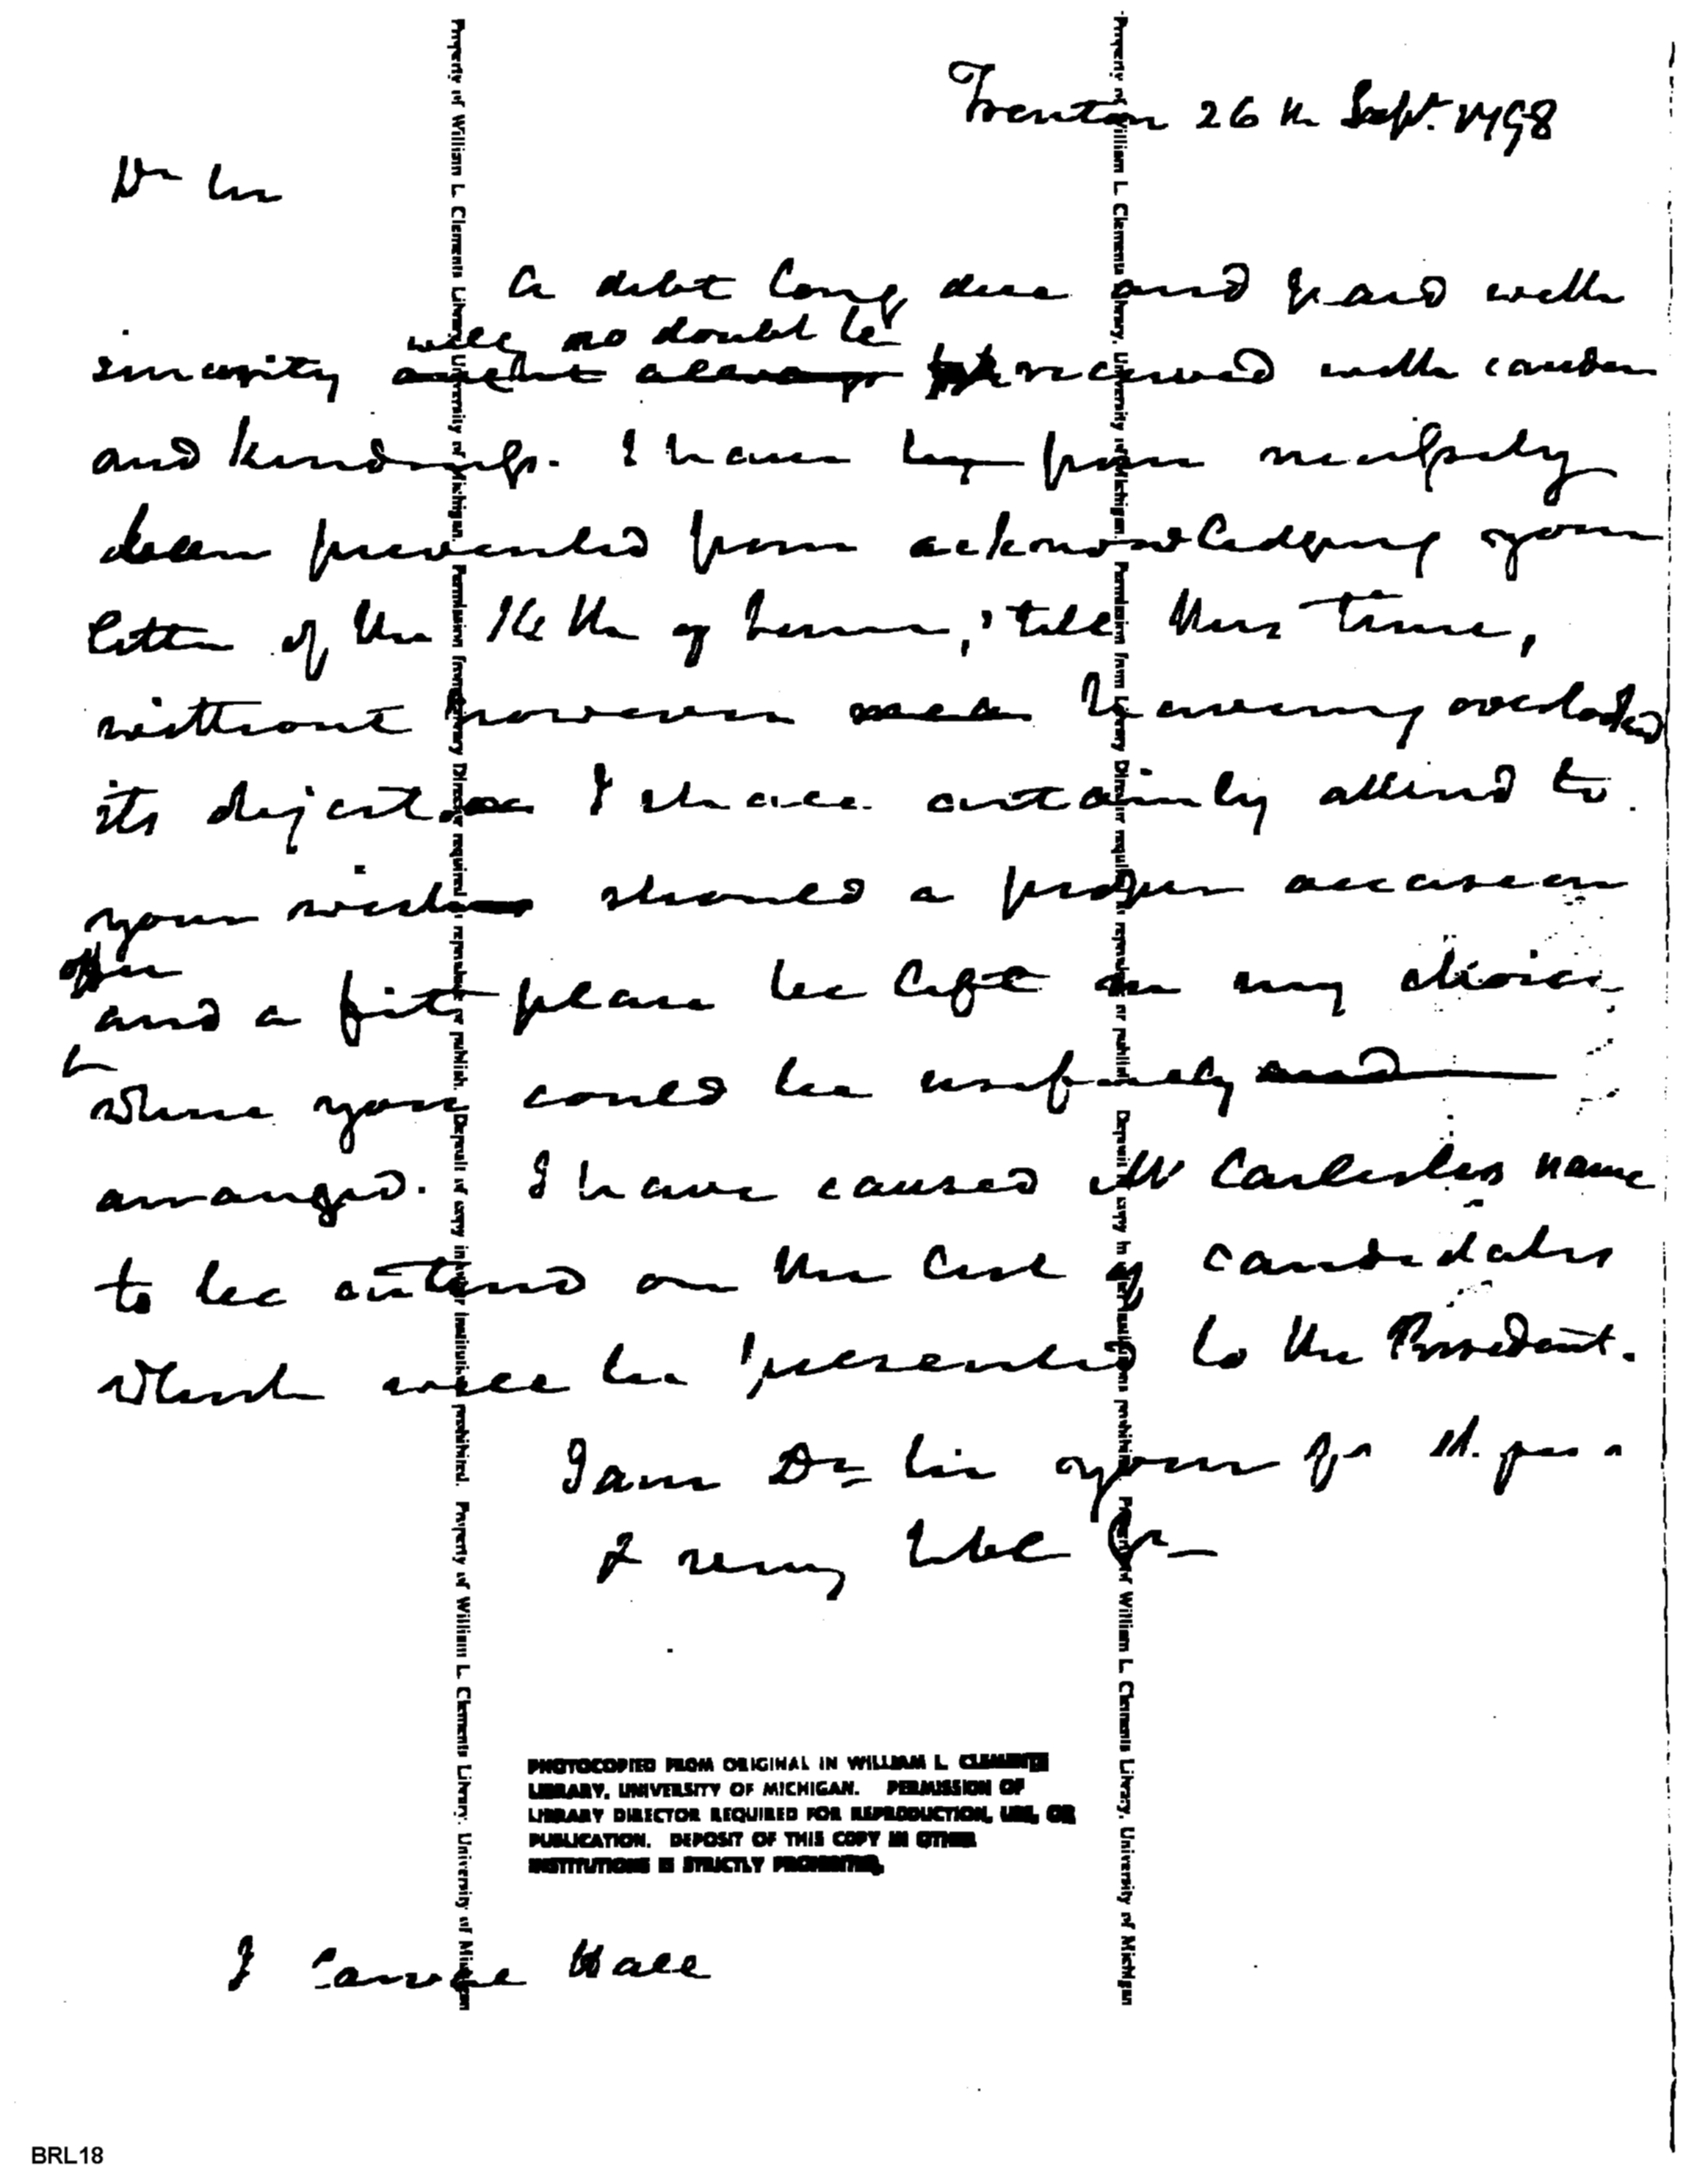 Trenton 26th Sept. 1798
Dr Sir
A debt long due and paid with
will no doubt be
sincerity ought always received with candor
and kindness. I have from necessity
been prevented from acknowledging your
letter of the 16th of June, 'till this time,
without however having overlooked
its object I shall certainly attend to
your wishes should a proper occasion
offer
and a fit place be left in my choice
where you could be usefully and
arranged. I have caused Mr Carlisles name
to be entered on the list of candidates
which will be presented to the President.
I am Dr Sir your
& very Hbl
PHOTOCOPIED FROM ORIGINAL IN WILLIAM L. CLEMENTS
LIBRARY, UNIVERSITY OF MICHIGAN. PERMISSION OF
LIBRARY DIRECTOR REQUIRED FOR REPRODUCTION, USE, OR
PUBLICATION. DEPOSIT OF THIS COPY IN OTHER
INSTITUTIONS IS STRICTLY PROHIBITED.
J Carvile Hall
BRL18
Property of William L. Clements Library, University of Michigan. Permission from Library Director required to reproduce or publish. Deposit of copy in other institutions prohibited. Property of William L. Clements Library, University of Michigan
Property of William L. Clements Library, University of Michigan. Permission from Library Director required to reproduce or publish. Deposit of copy in other institutions prohibited. Property of William L. Clements Library, University of Michigan